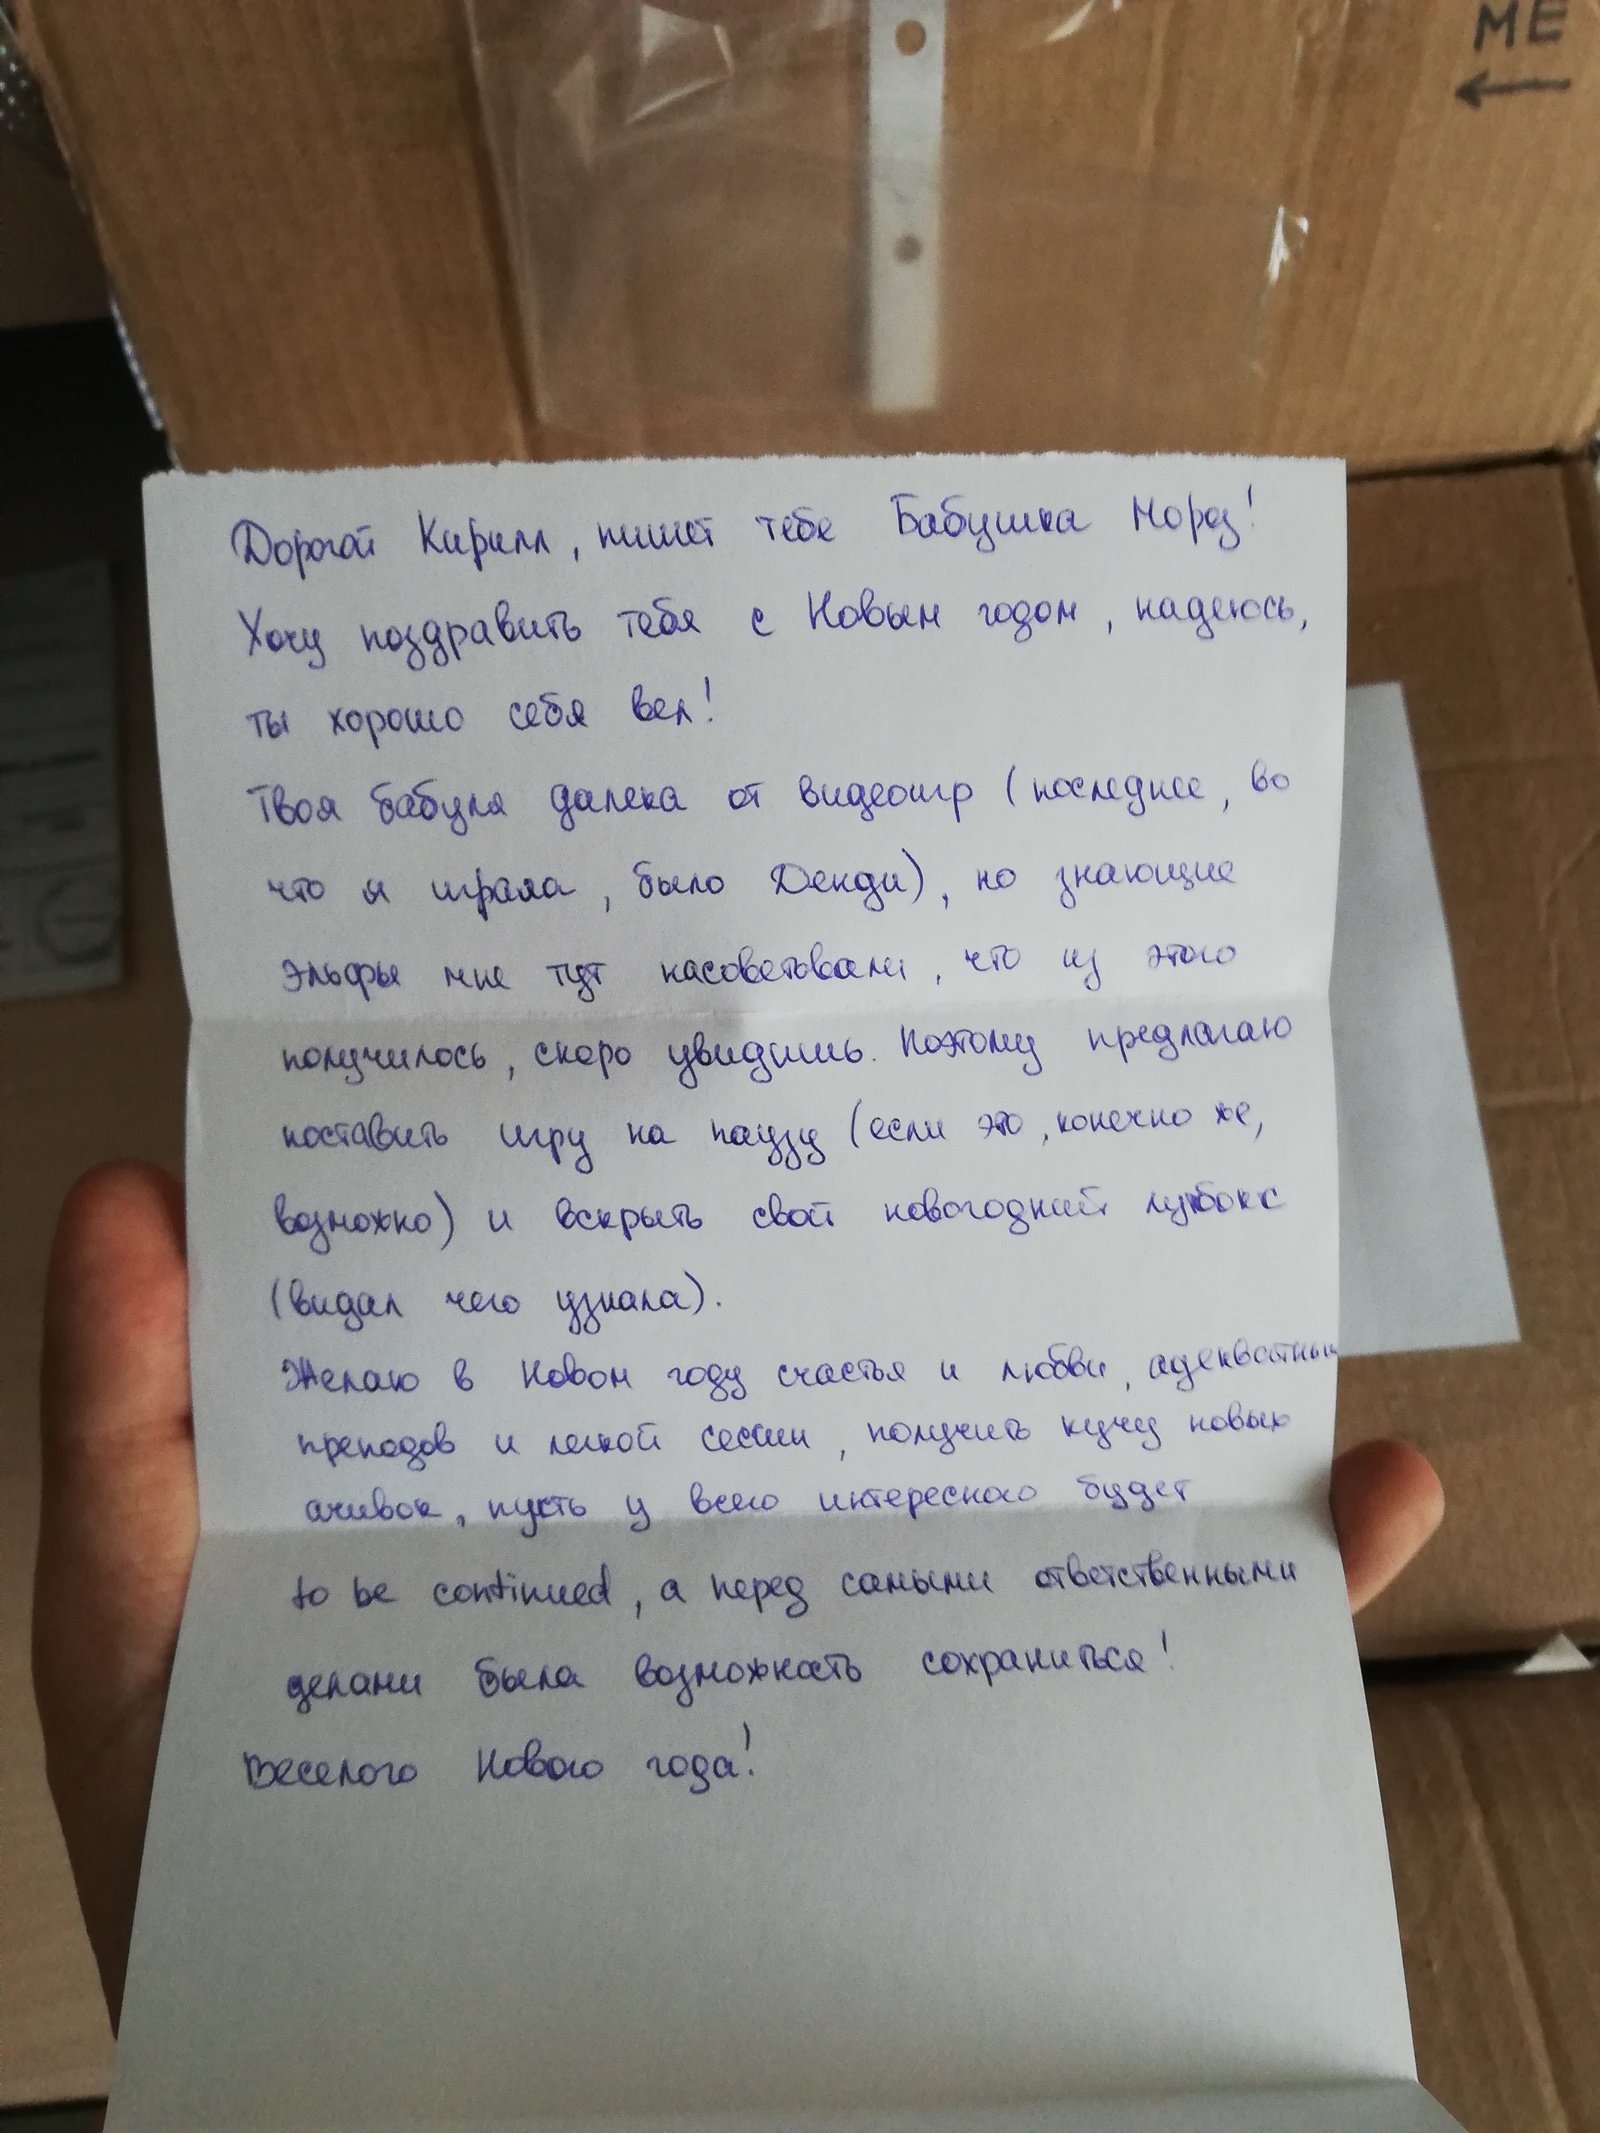 ME
Дорогой Кирилл, пишет тебе Бабушка Мороз!
Хочу поздравить тебя с Новым годом, надеюсь,
ты хорошо себя вел!
Твоя бабуля далека от видеоигр (последнее, во
что я играла, было Денди), но знающие
эльфы мне тут насоветовали, что из этого
получилось, скоро увидишь. Поэтому предлагаю
поставить игру на паузу (если это, конечно же,
возможно) и вскрыть свой новогодний лутбокс
(видал чего узнала).
Желаю в Новом году счастья и любви, адекватных
преподов и легкой сессии, получить кучу новых
ачивок, пусть у всего интересного будет
to be continued, а перед самыми ответственными
делами была возможность сохраниться!
Веселого Нового года!